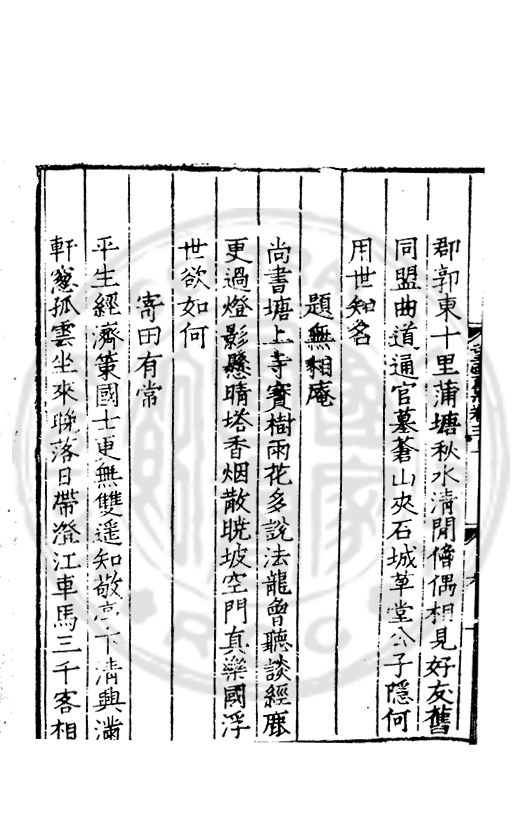 郡郭東十里蒲塘秋水清閒僧偶相見好友舊
同盟曲道通官墓蒼山夾石城草堂公子隱何
用世知名
題無相庵
尚書塘上寺寶樹雨花多說法龍曾聽談經鹿
更過燈影懸晴塔香烟散晚坡空門真樂國浮
世欲如何
寄田有常
平生經濟策國士更無雙遥知敬亭下清興滿
軒窻孤雲坐來睇落日帶澄江車馬三千客相